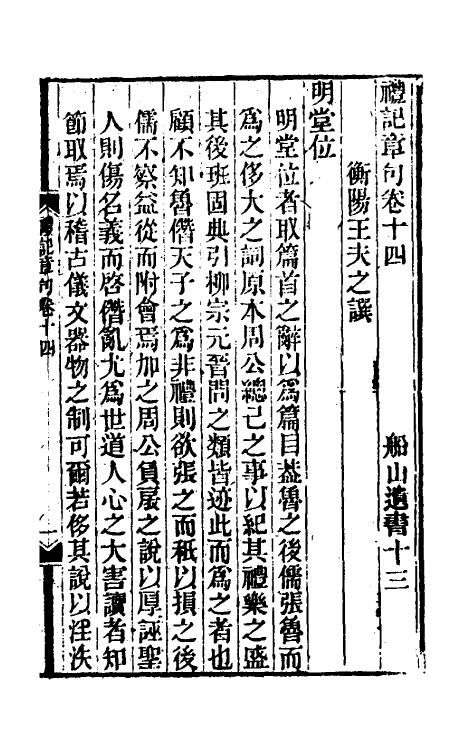 禮記章句卷十四　船山遺書十三
衡陽王夫之譔
明堂位
明堂位者取篇首之辭以爲篇目葢魯之後儒張魯而
爲之侈大之詞原本周公總己之事以紀其禮樂之盛
其後班固典引柳宗元晉問之類皆迹此而爲之者也
顧不知魯僭天子之爲非禮則欲張之而秖以損之後
儒不察益從而附會焉加之周公負扆之說以厚誣聖
人則傷名義而啓僭亂尤爲世道人心之大害讀者知
節取焉以稽古儀文器物之制可爾若侈其說以汪泆
禮記章句卷十四
一